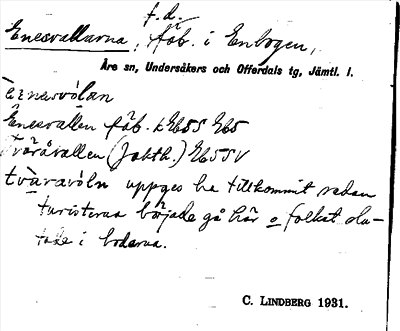 f.d.
Enesvallarna, fäb. i Enbogen,
Åre sn, Undersåkers och Offerdals tg, Jämtl. l.
Enesvallen fäb.
Tväråvallen (Jakth.)
tväråvóln uppges ha tillkommit sedan
turisterna började gå här o folket slu-
tade i bodarna.
C. LINDBERG 1931.